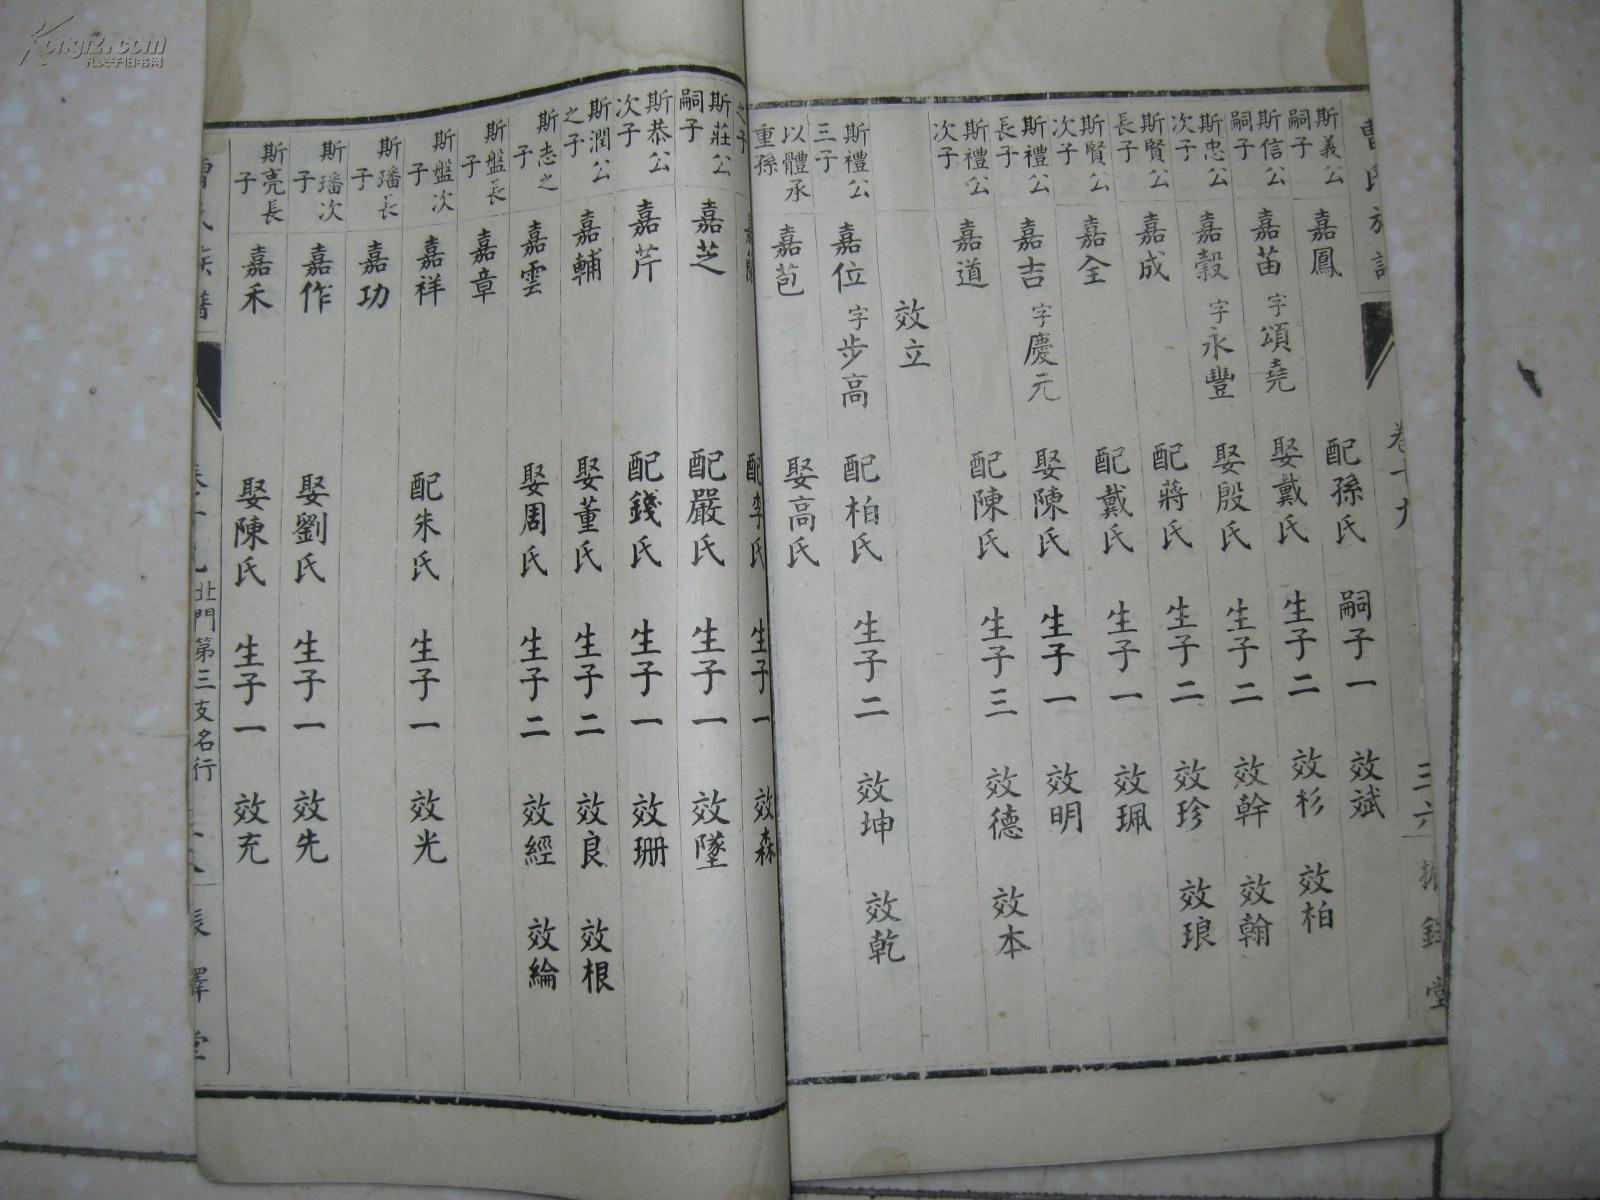 斯義公嗣子 嘉鳳 配孫氏 嗣子一 效斌
斯信公嗣子 嘉苗 字頌堯 娶戴氏 生子二 效杉 效柏
斯忠公次子 嘉穀 字永豐 娶殷氏 生子二 效幹 效翰
斯賢公長子 嘉成 配蔣氏 生子二 效珍 效琅
斯賢公次子 嘉全 配戴氏 生子一 效珮
斯禮公長子 嘉吉 字慶元 娶陳氏 生子一 效明
斯禮公次子 嘉道 配陳氏 生子三 效德 效本
效立
斯禮公三子 嘉位 字步高 配柏氏 生子二 效坤 效乾
以體承重孫 嘉苞 娶高氏
之子 配李氏 生子一 效森
斯莊公嗣子 嘉芝 配嚴氏 生子一 效墜
斯恭公次子 嘉芹 配錢氏 生子一 效珊
斯潤公之子 嘉輔 娶董氏 生子二 效良 效根
斯志之子 嘉雲 娶周氏 生子二 效經 效綸
斯盤長子 嘉章
斯盤次子 嘉祥 配朱氏 生子一 效光
斯璠長子 嘉功
斯璠次子 嘉作 娶劉氏 生子一 效先
斯亮長子 嘉禾 娶陳氏 生子一 效充
北門第三支名行
Kongfz.com
孔夫子旧书网